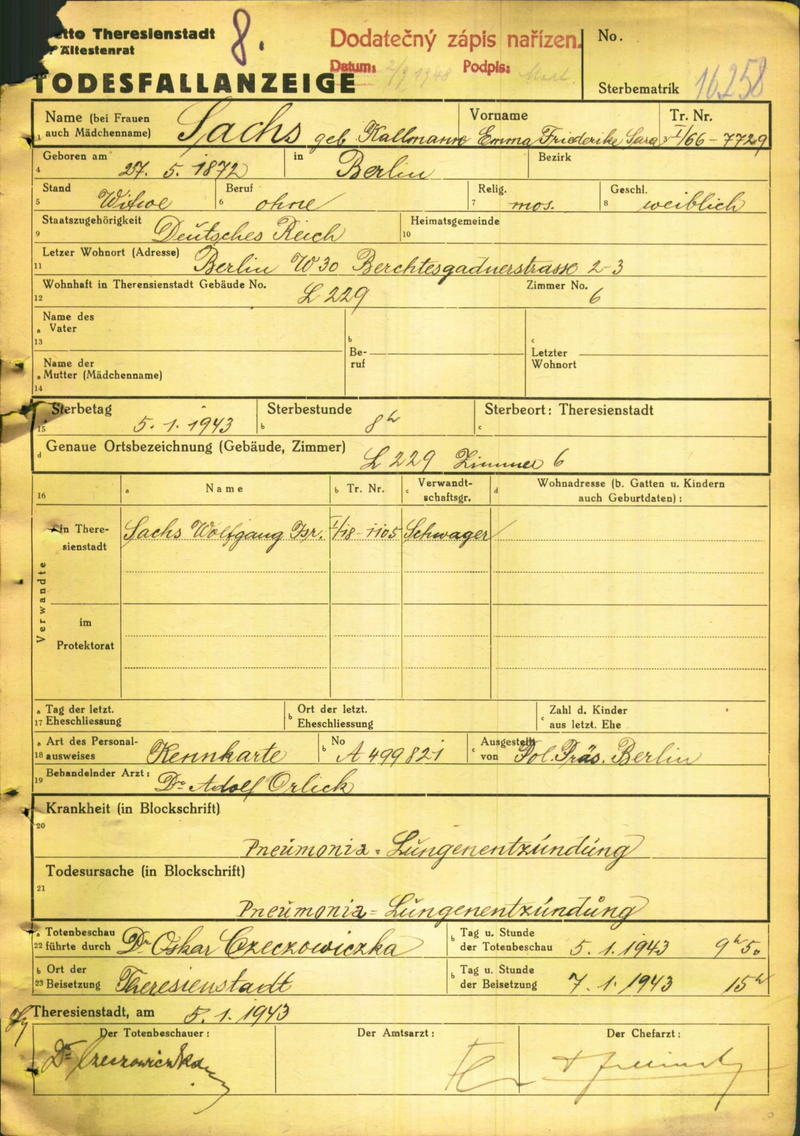 tto Theresienstadt
Ältestenrat
8.
Dodatečný zápis nařízen.
Datum: 2/9 1948 Podpis:
No.
TODESFALLANZEIGE
Sterbematrik 16258
Name (bei Frauen auch Mädchenname) Sachs geb Kallmann Vorname Emma Friederike Sara Tr. Nr. I/66-7729
4 Geboren am 27. 5. 1872 in Berlin Bezirk
5 Stand Witwe 6 Beruf ohne 7 Relig. mos. 8 Geschl. weiblich
9 Staatszugehörigkeit Deutsches Reich 10 Heimatsgemeinde
11 Letzer Wohnort (Adresse) Berlin W 30 Berchtesgadnerstrasse 2-3
12 Wohnhaft in Theresienstadt Gebäude No. L 229 Zimmer No. 6
13 a Name des Vater b Beruf c Letzter Wohnort
14 a Name der Mutter (Mädchenname)
15 Sterbetag 5. 1. 1943 b Sterbestunde 8h c Sterbeort: Theresienstadt
d Genaue Ortsbezeichnung (Gebäude, Zimmer) L 229 Zimmer 6
16 a Name b Tr. Nr. c Verwandtschaftsgr. d Wohnadresse (b. Gatten u. Kindern auch Geburtdaten):
Verwandte
in Theresienstadt Sachs Wolfgang Isr. I/18-1105 Schwager
im Protektorat
17 a Tag der letzt. Eheschliessung b Ort der letzt. Eheschliessung c Zahl d. Kinder aus letzt. Ehe
18 a Art des Personalausweises Kennkarte b No A 499821 c Ausgestellt von Pol. Präs. Berlin
19 Behandelnder Arzt: Dr Adolf Orlick
20 Krankheit (in Blockschrift)
Pneumonia = Lungenentzündung
21 Todesursache (in Blockschrift)
Pneumonia = Lungenentzündung
22 a Totenbeschau führte durch Dr Oskar Czeczowiczka b Tag u. Stunde der Totenbeschau 5. 1. 1943 9h 50
23 b Ort der Beisetzung Theresienstadt b Tag u. Stunde der Beisetzung 7. 1. 1943 15h
Theresienstadt, am 5. 1. 1943
Der Totenbeschauer: Der Amtsarzt: Der Chefarzt:
Dr Czeczowiczka